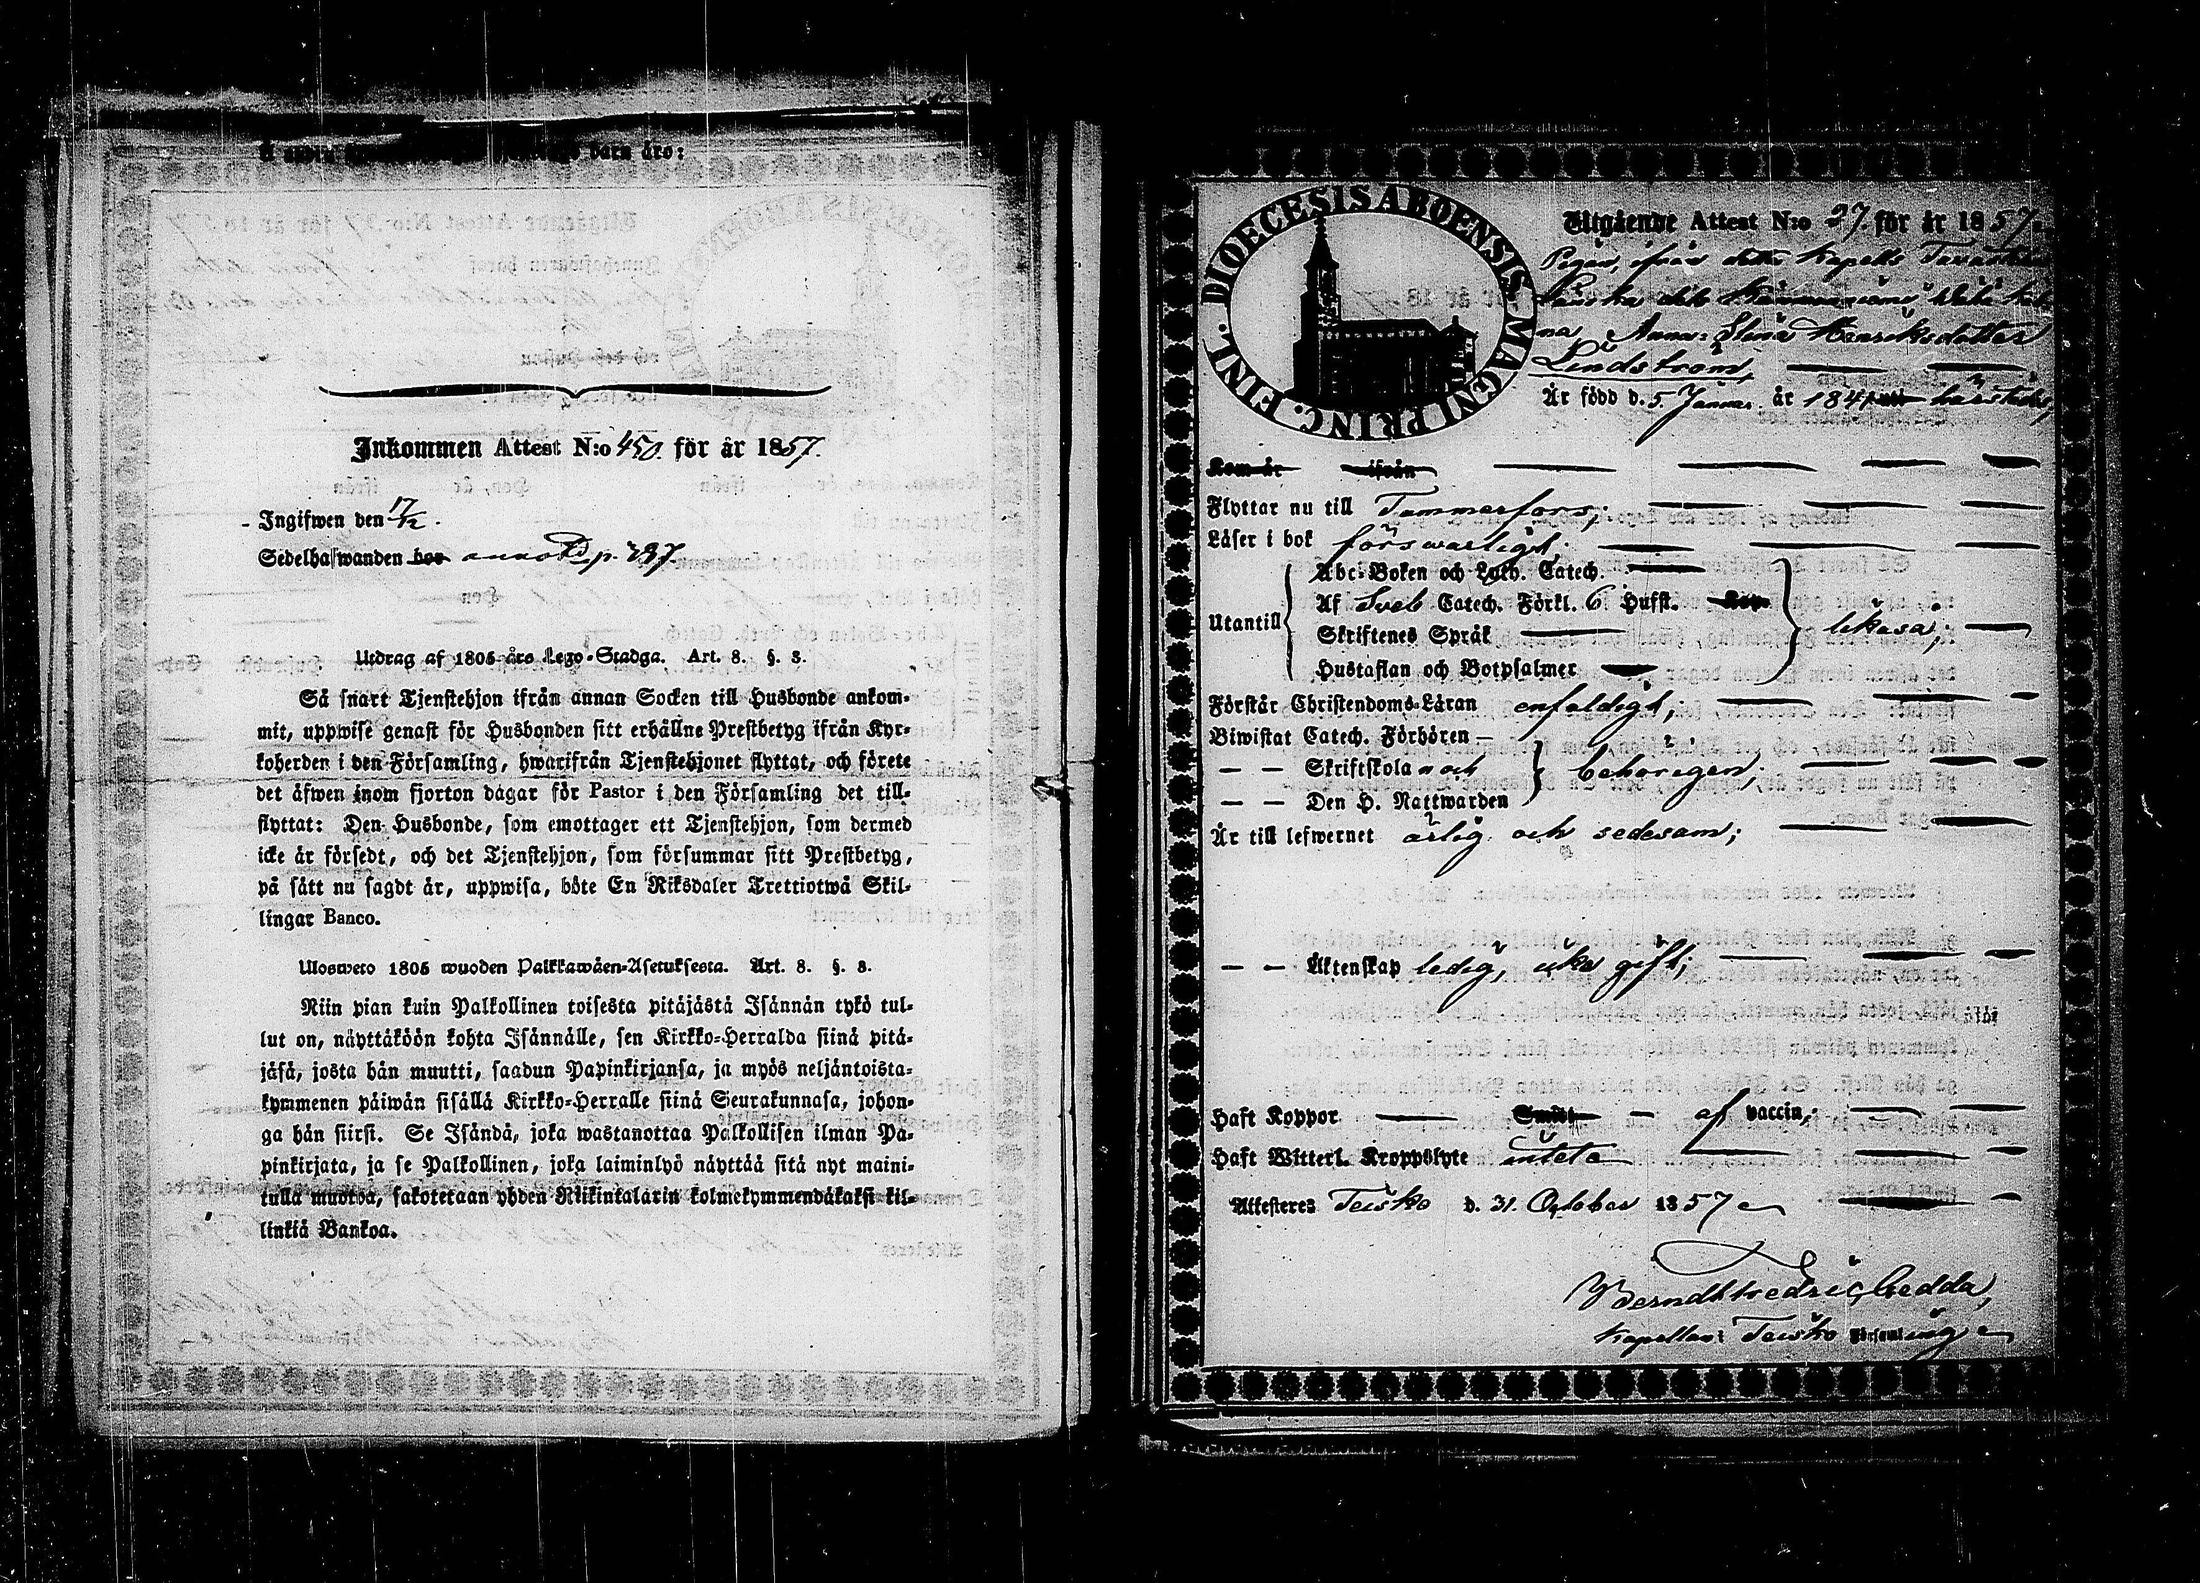 barn äro:
Inkommen Attest N:o 450. för år 1857.
Ingifwen den 17/12.
Sedelhafwanden bor p. 297.
Utdrag af 1805 års Lego-Stadga. Art. 8. §. 3.
Så snart Tjenstehjon ifrån annan Socken till Husbonde ankom-
mit, uppwise genast för Husbonden sitt erhållne Prestbetyg ifrån Kyr-
koherden i den Församling, hwarifrån Tjenstehjonet flyttat, och förete
det äfwen inom fjorton dagar för Pastor i den Församling det till-
flyttat: Den Husbonde, som emottager ett Tjenstehjon, som dermed
icke är försedt, och det Tjenstehjon, som försummar sitt Prestbetyg,
på sätt nu sagdt är, uppwisa, böte En Riksdaler Trettiotwå Skil-
lingar Banco.
Ulosweto 1805 wuoden Palkkawäen-Asetuksesta. Art. 8. §. 3.
Niin pian kuin Palkollinen toisesta pitäjästä Isännän tykö tul-
lut on, näyttäköön kohta Isännälle, sen Kirkko-Herralda siinä pitä-
jäsä, josta hän muutti, saadun Papinkirjansa, ja myös neljäntoista-
kymmenen päiwän sisällä Kirkko-Herralle siinä Seurakunnasa, johon-
ga hän siirsi. Se Isändä, joka wastanottaa Palkollisen ilman Pa-
pinkirjata, ja se Palkollinen, joka laiminlyö näyttää sitä nyt maini-
tulla muotoa, sakotetaan yhden Riikinkalarin kolmekymmendäkaksi kil-
linkiä Bankoa.
DIOECESIS ABOENSIS MAGNI PRINC. FINL.
Utgående Attest N:o 27. för år 1857.
Pigan, ifrån detta Kapells
na, Anna Stina Henriksdotter
Lindström,
Är född d. 5. Januar. år 1841
Kom år ifrån
Flyttar nu till Tammerfors;
Läser i bok förswarligt;
Utantill
Abc-Boken och Luth. Catech.
Af Sveb Catech. Förkl. 6 Hufst. Kap.
Skriftenes Språk
Hustaflan och Botpsalmer
likaså;
Förstår Christendoms-Läran enfaldigt;
Biwistat Catech. Förhören
— — Skriftskola och
— — Den H. Nattwarden
behörigen;
Är till lefwernet ärlig och sedesam;
— — Äktenskap ledig, icke gift;
Haft Koppor Smitt af vaccin;
Haft Witterl. Kroppslyte intet
Attesterer Teisko d. 31. October 1857
Berndt Fredric Gedda,
Kapellan i Teisko Församling